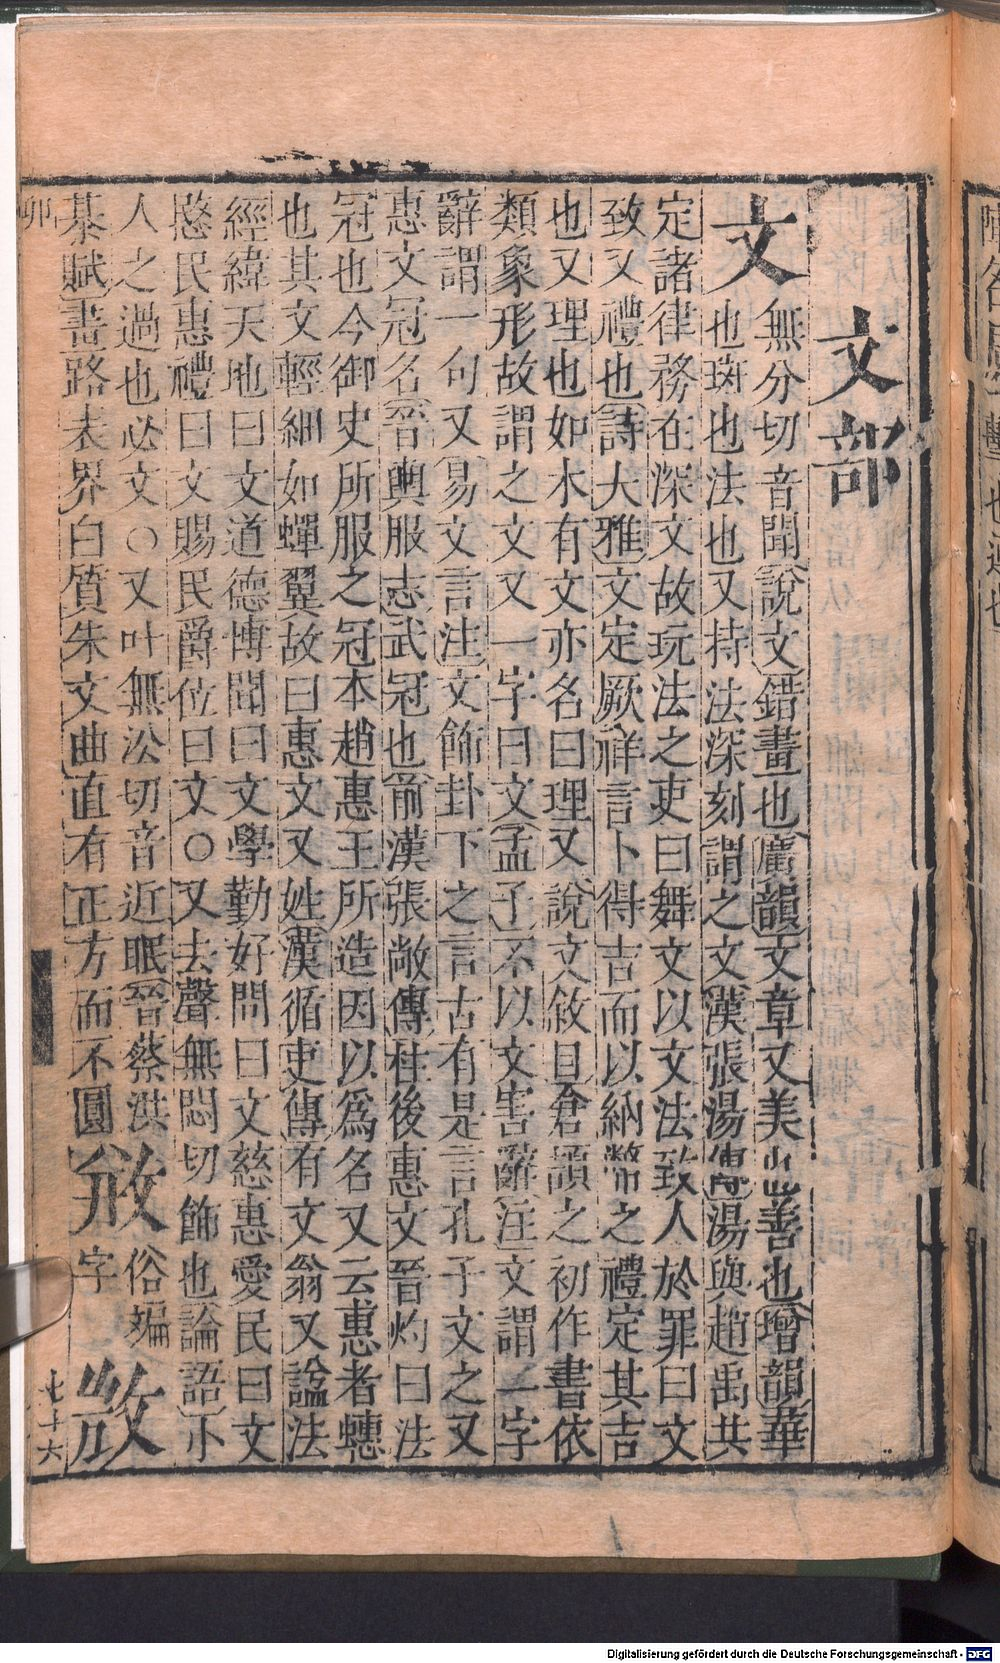 文部
文無分切音聞說文錯畫也廣韻文章又美也善也增韻華
也斑也法也又持法深刻謂之文漢張湯傳湯與趙禹共
定諸律務在深文故玩法之吏曰舞文以文法致人於罪曰文
致又禮也詩大雅文定厥祥言卜得吉而以納幣之禮定其吉
也又理也如木有文亦名曰理又說文敘曰倉頡之初作書依
類象形故謂之文又一字曰文孟子不以文害辭注文謂一字
辭謂一句又易文言注文飾卦下之言古有是言孔子文之又
惠文冠名晉輿服志武冠也前漢張敞傳柱後惠文晉灼曰法
冠也今御史所服之冠本趙惠王所造因以爲名又云惠者蟪
也其文輕細如蟬翼故曰惠文又姓漢循吏傳有文翁又諡法
經緯天地曰文道德博聞曰文學勤好問曰文慈惠愛民曰文
愍民惠禮曰文賜民爵位曰文○又去聲無悶切飾也論語小
人之過也必文○又叶無汾切音近眠晉蔡洪
棊賦畫路表界白質朱文曲直有正方而不圓
俗斒
字
七十六
Digitalisierung gefördert durch die Deutsche Forschungsgemeinschaft - DFG